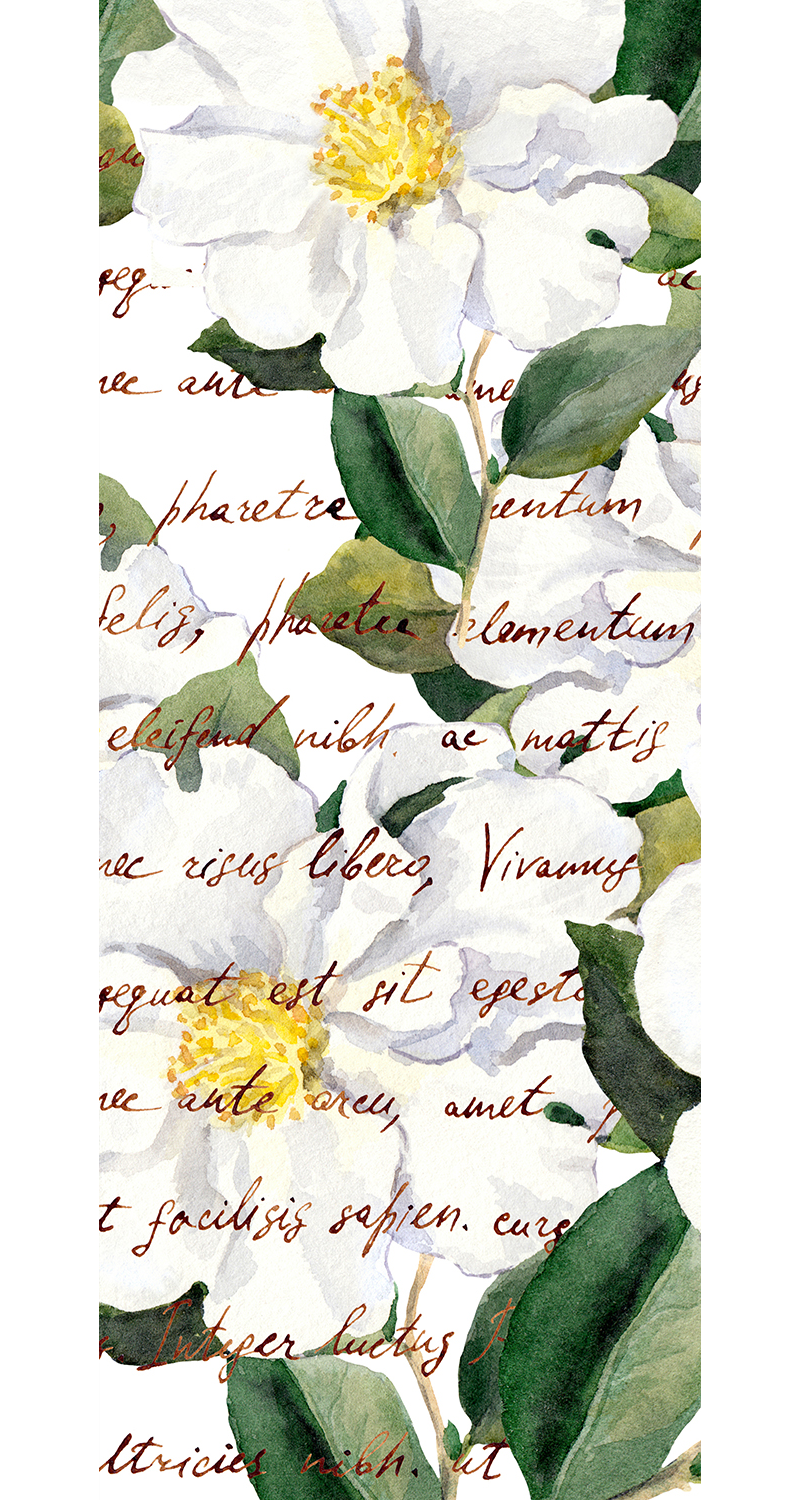 ac
nec ante
pharetra entum
felis, pharetra elementum
eleifend nibh. ac mattis
nec risus libero, Vivamus
sequat est sit egesta
nec ante arcu, amet
t facilisis sapien. curs
Integer luctus
ltricies nibh. ut